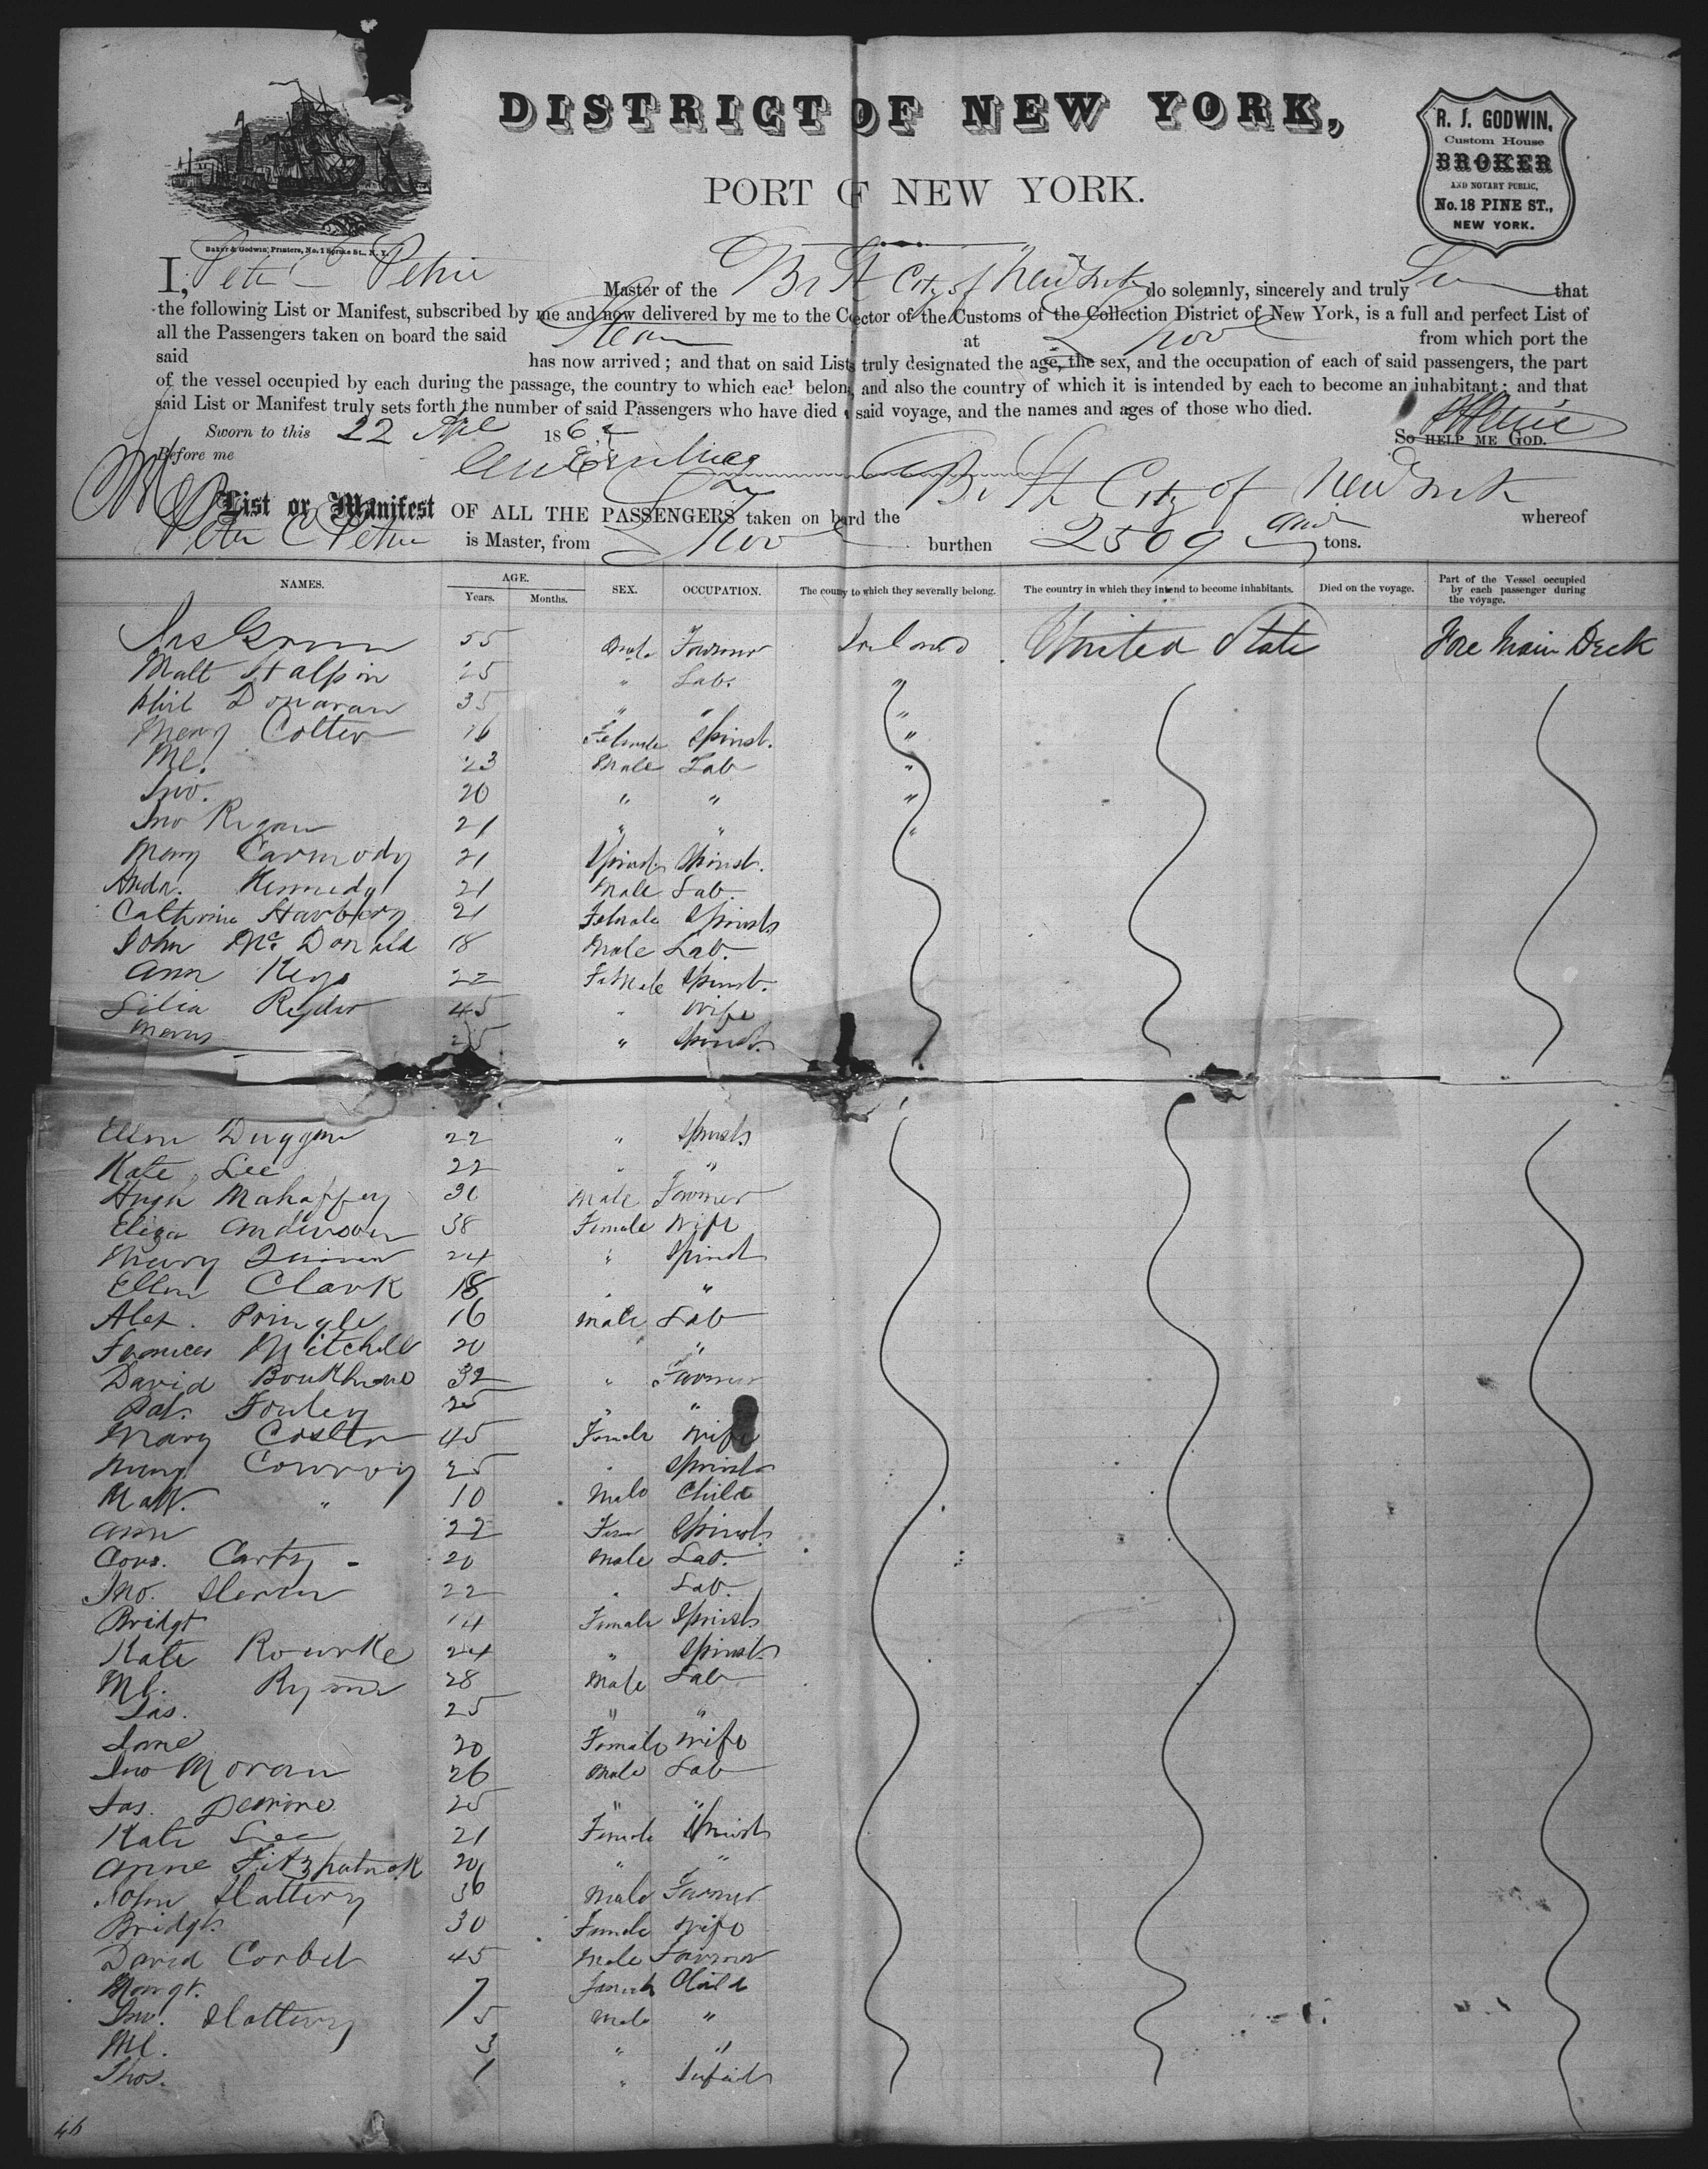 DISTRICT OF NEW YORK,
PORT OF NEW YORK.
R. J. GODWIN,
Custom House
BROKER
AND NOTARY PUBLIC,
No. 18 PINE ST.,
NEW YORK.
Baker & Godwin, Printers, No. 1 Spruce St., N. Y.
I, Peter C Petrie Master of the Br St City of New York do solemnly, sincerely and truly that
the following List or Manifest, subscribed by me and now delivered by me to the Collector of the Customs of the Collection District of New York, is a full and perfect List of
all the Passengers taken on board the said at from which port the
said has now arrived; and that on said List truly designated the age, the sex, and the occupation of each of said passengers, the part
of the vessel occupied by each during the passage, the country to which each belong, and also the country of which it is intended by each to become an inhabitant; and that
said List or Manifest truly sets forth the number of said Passengers who have died said voyage, and the names and ages of those who died.
Sworn to this 22 186 So help me God.
Before me
List or Manifest OF ALL THE PASSENGERS taken on board the Br St City of New York whereof
Peter C Petrie is Master, from burthen 2509 tons.
NAMES. AGE. Years. Months. SEX. OCCUPATION. The country to which they severally belong. The country in which they intend to become inhabitants. Died on the voyage. Part of the Vessel occupied by each passenger during the voyage.
Jas 55 Male Farmer Ireland United State Fore Main Deck
Matt Halpin 25 " Lab. "
Phil Donavan 35 " " "
Mary Colter 16 Female Spinst. "
Ml. 23 Male Lab "
Jno. 20 " " "
Jno Regan 21 " " "
Mary Carmody 21 Spinst. Spinst.
Andr. Kennedy 21 Male Lab
Catherine 21 Female Spinst
John McDonald 18 Male Lab.
Ann Keys 22 Female Spinst.
Ryder 45 " Wife
25 " Spinst.
Ellen Duggan 22 " Spinst
Kate Lee 22 " "
Hugh Mahaffey 30 Male Farmer
Eliza Anderson 38 Female Wife
Mary 24 " Spinst
Ellen Clark 18 " "
Alex. Pringle 16 Male Lab
Frances Mitchell 20 "
David 32 " Farmer
Pat. Fouley 25 " "
Mary Coster 45 Female Wife
Conroy 25 " Spinst
Matt. " 10 Male Child
Ann 22 Fem Spinst.
Corn. Carty 20 Male Lab.
Jno. 22 " Lab.
Bridgt 14 Female Spinst
Kate Rourke 24 " Spinst.
Ml. 28 Male Lab
Jas. 25 " "
Jane 20 Female Wife
Jno Moran 26 Male Lab
Jas. 25 " "
Kate Lee 21 Female Spinst
Anne Fitzpatrick 20 " "
John Slattery 36 Male Farmer
Bridgt. 30 Female Wife
David Corbet 45 Male Farmer
Margt. 7 Female Child
Jno. Slattery 5 Male "
Ml. 3 " "
Thos. 1 " Infant
46